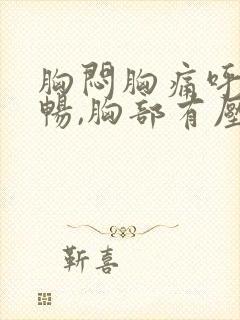 胸悶胸痛呼
暢,胸部有壓
靳喜